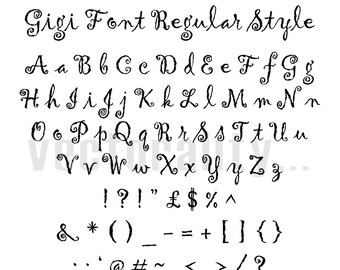 Gigi Font Regular Style
A a B b C c D d E e F f G g
H h I i J j K k L l M m N n
O o P p Q q R r S s T t U u
V v W w X x Y y Z z
! ? ! " £ $ % ^
& * ( ) _ - = + [ ] { }
. . ' @ # ~ < > / ?